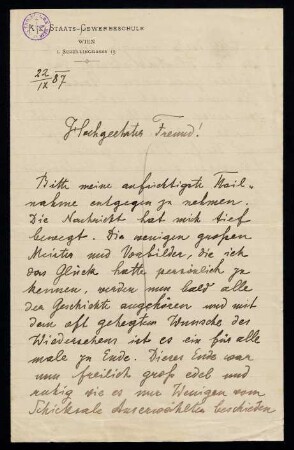 K. K. STAATS-GEWERBESCHULE
WIEN
I. SCHELLINGGASSE 13
22/IX 87
Hochgeehrter Freund!
Bitte meine aufrichtigste Theil-
nahme entgegen zu nehmen.
Die Nachricht hat mich tief
bewegt. Die wenigen großen
Meister und Vorbilder, die ich
das Glück hatte persönlich zu
kennen, werden nun bald alle
der Geschichte angehören und mit
dem oft gehegten Wunsche des
Wiedersehens ist es ein für alle
male zu Ende. Dieses Ende war
nun freilich groß edel und
ruhig wie es nur Wenigen vom
Schicksale Auserwählten beschieden